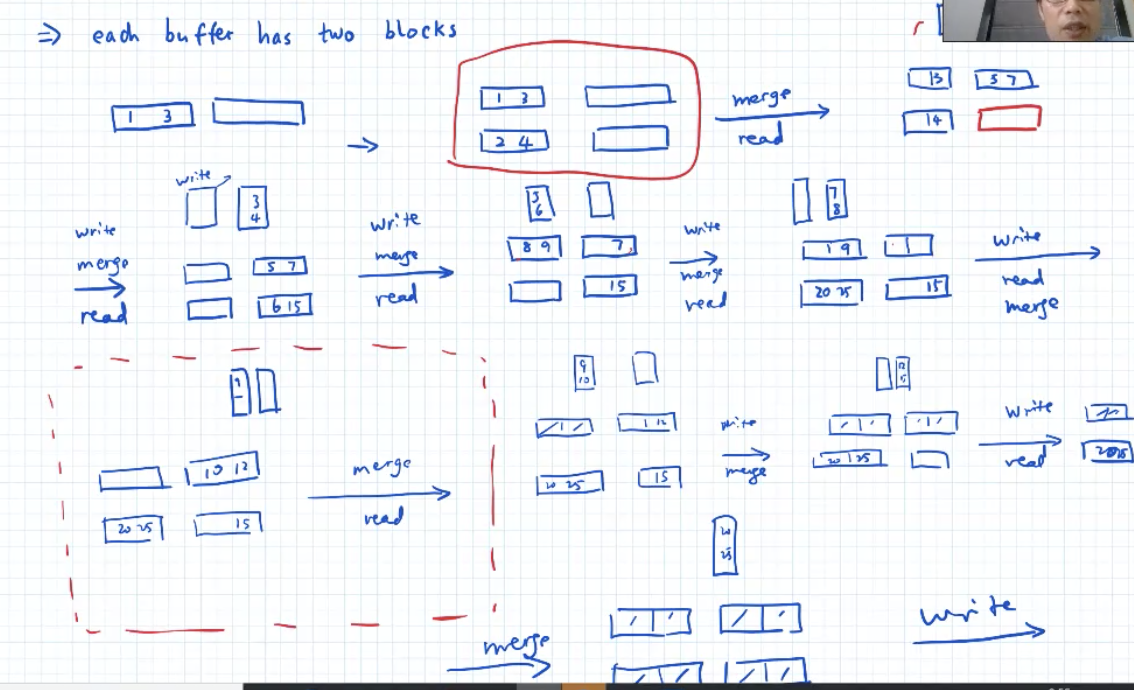 ⇒ each buffer has two blocks
1 3
1 3
2 4
merge
read
13 57
14
write
merge
read
write
3
4
5 7
6 15
write
merge
read
5
6
8 9 7
15
write
merge
read
7
8
1 9
20 25 15
write
read
merge
9
10 12
20 25 15
merge
read
9
10
12
20 25 15
write
merge
20 25
write
read
2025
20
25
merge
write